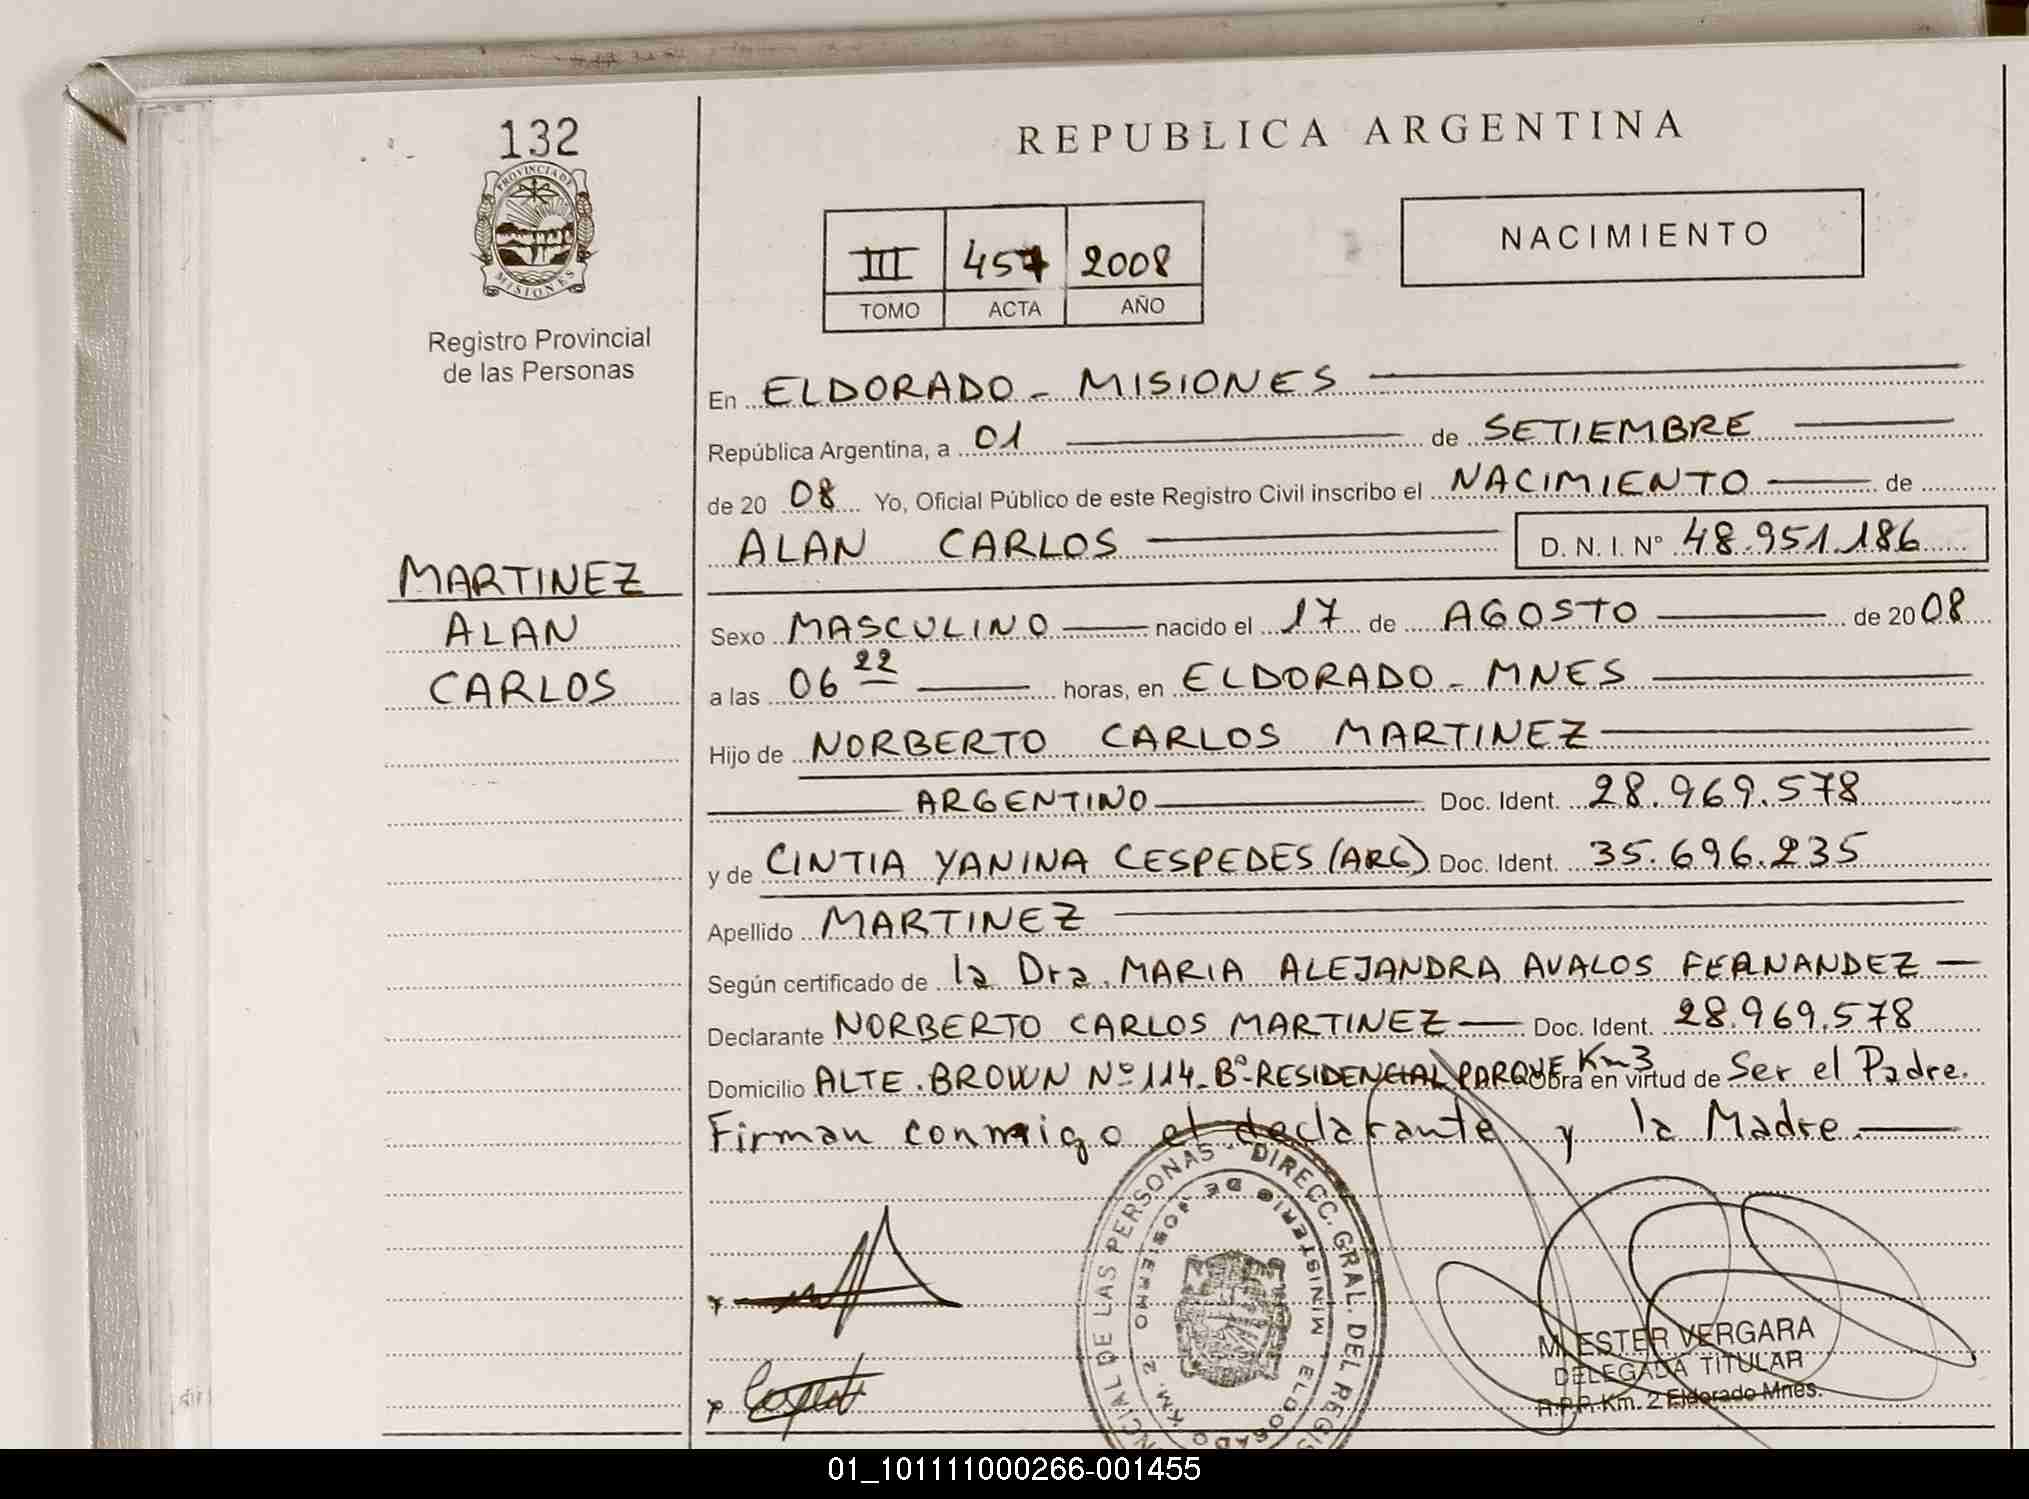 132
PROVINCIA DE
MISIONES
Registro Provincial
de las Personas
MARTINEZ
ALAN
CARLOS
REPUBLICA ARGENTINA
III 457 2008
TOMO ACTA AÑO
NACIMIENTO
En ELDORADO - MISIONES
República Argentina, a 01 de SETIEMBRE
de 20 08 Yo, Oficial Público de este Registro Civil inscribo el NACIMIENTO de
ALAN CARLOS D. N. I. Nº 48.951.186
Sexo MASCULINO nacido el 17 de AGOSTO de 20 08
a las 06 22 horas, en ELDORADO - MNES
Hijo de NORBERTO CARLOS MARTINEZ
ARGENTINO Doc. Ident. 28.969.578
y de CINTIA YANINA CESPEDES (ARG) Doc. Ident. 35.696.235
Apellido MARTINEZ
Según certificado de la Dra. MARIA ALEJANDRA AVALOS FERNANDEZ
Declarante NORBERTO CARLOS MARTINEZ Doc. Ident. 28.969.578
Domicilio ALTE. BROWN Nº 114 - Bº RESIDENCIAL PARQUE Km 3 Obra en virtud de Ser el Padre.
Firman conmigo el declarante y la Madre.
DIRECC. GRAL. DEL REGIS
NCIAL DE LAS PERSONAS
MINISTERIO DE GOBIERNO
KM. 2 ELDORADO
M. ESTER VERGARA
DELEGADA TITULAR
R.P.P. Km. 2 Eldorado Mnes.
01_101111000266-001455